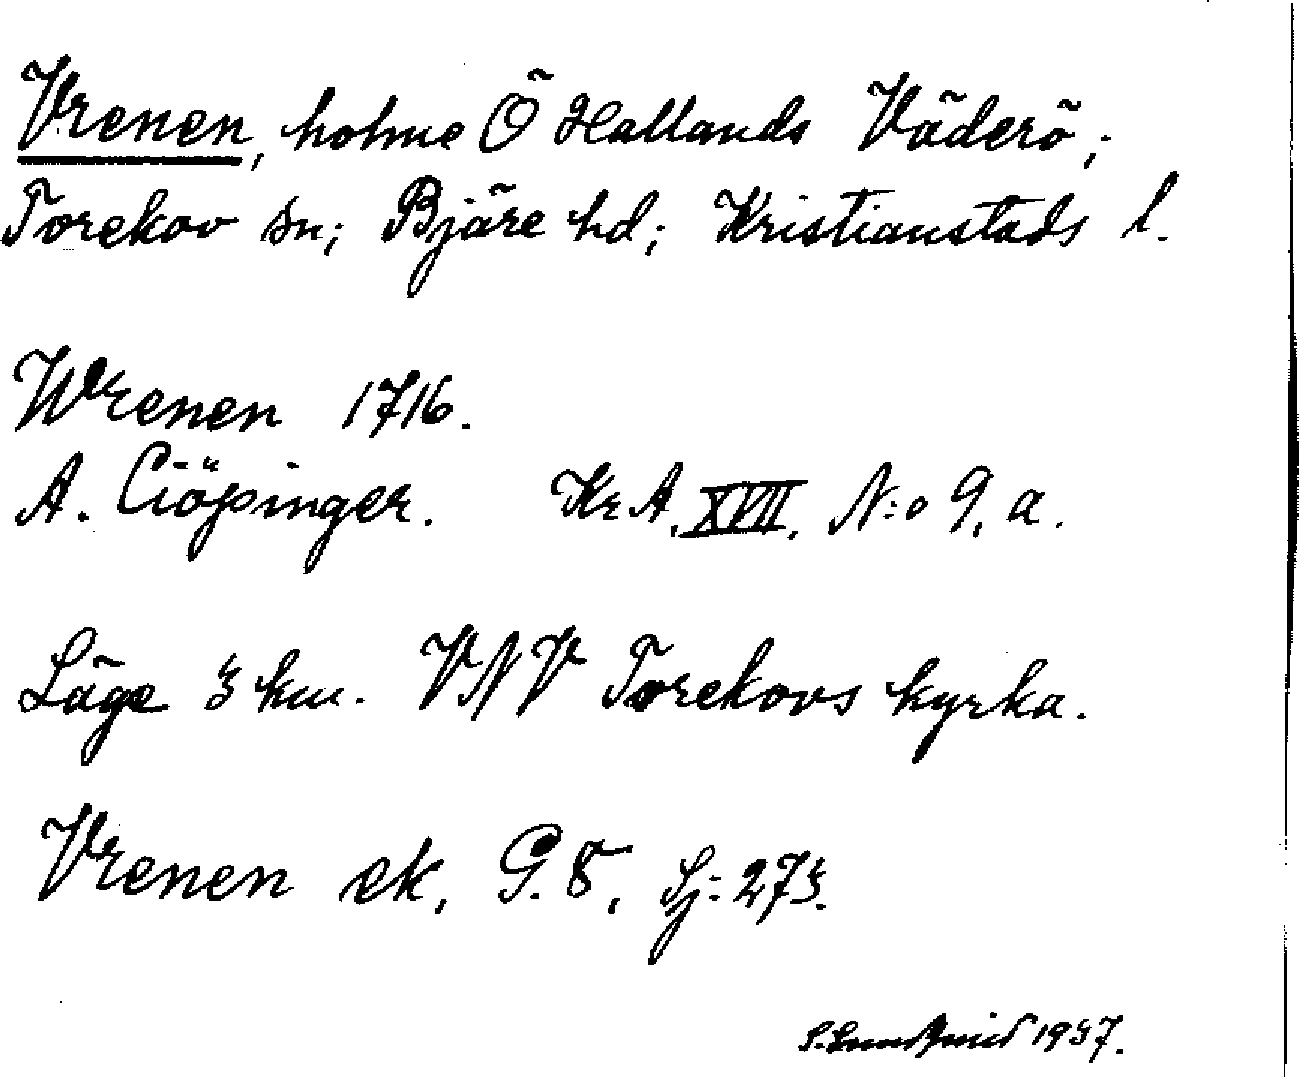 Vrenen, holme Ö Hallands Väderö;
Torekov sn; Bjäre hd; Kristianstads l.
Wrenen 1716.
A. Ciöpinger. Kr A. XVII. N:o 9. a.
Läge 3 km. VNV Torekovs kyrka.
Vrenen ek. G. 8. Sj: 273.
1937.